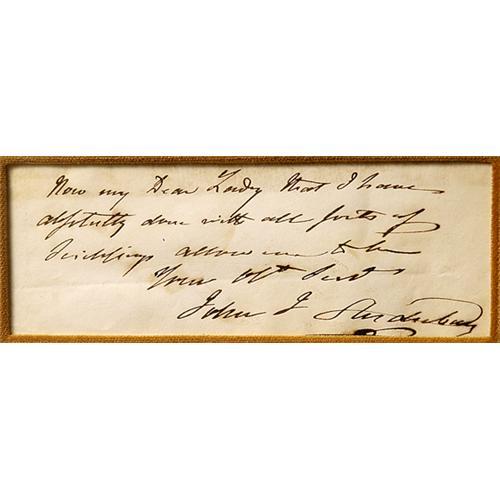 Now my Dear Lady that I have
absolutely done with all sorts of
allow me to be
Your Ob^t Serv^t
John J Audubon